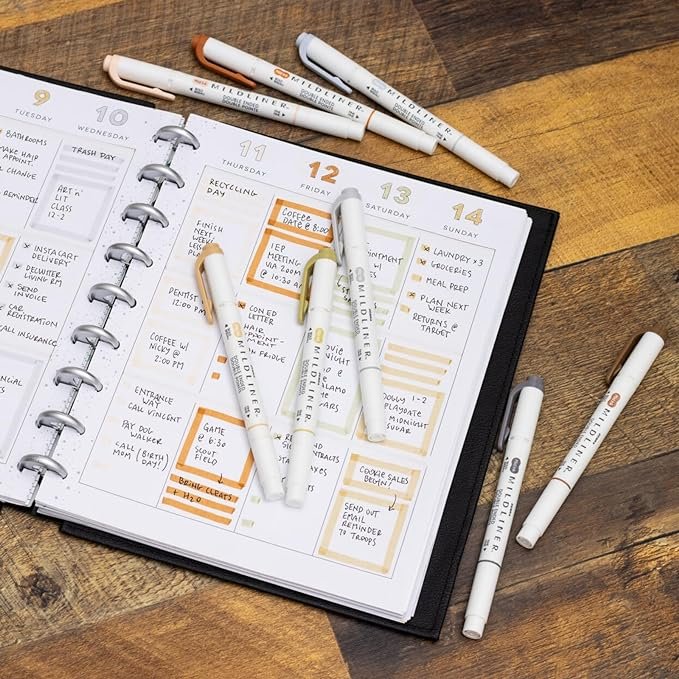 9
TUESDAY
BATHROOMS
MAKE HAIR
APPOINT.
CHANGE
REMINDER
INSTACART
DELIVERY
DECLUTTER
LIVING RM
SEND
INVOICE
CAR
REGISTRATION
CALL INSURANCE
10
WEDNESDAY
TRASH DAY
ART 'N'
LIT
CLASS
12-2
11
THURSDAY
RECYCLING
DAY
FINISH
NEXT
WEEK'S
LESSON
12:00 PM
COFFEE W/
NICKY @
2:00 PM
ENTRANCE
WAY
CALL VINCENT
PAY DOG
WALKER
CALL
MOM (BIRTH
DAY!)
12
FRIDAY
COFFEE
DATE @ 8:00
IEP
MEETING
VIA ZOOM
@ 10:30 AM
CON ED
LETTER
HAIR
IN FRIDGE
GAME
@ 6:30
SCOUT
FIELD
BRING CLEATS
+ H2O
13
SATURDAY
W/
14
SUNDAY
LAUNDRY x3
GROCERIES
MEAL PREP
PLAN NEXT
WEEK
RETURNS @
TARGET
DOGGY 1-2
PLAYDATE
MIDNIGHT
SUGAR
COOKIE SALES
BEGIN!
SEND OUT
EMAIL
REMINDER
TO TROOPS
MILDLINER
DOUBLE ENDED
DOUBLE POINTS
MILDLINER
DOUBLE ENDED
DOUBLE POINTS
MILDLINER
DOUBLE ENDED
DOUBLE POINTS
MILDLINER
MILDLINER
MILDLINER
MILDLINER
MILDLINER